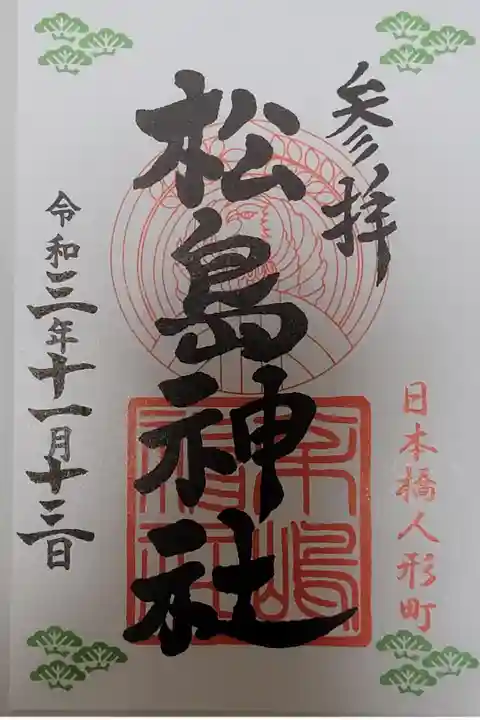 参拝
日本橋人形町
松島神社
令和三年十一月十三日